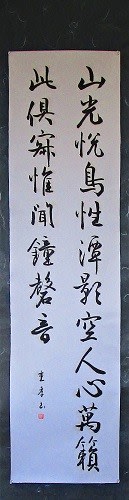 山光悦鳥性潭影空人心萬籟
此俱寂惟聞鐘磬音